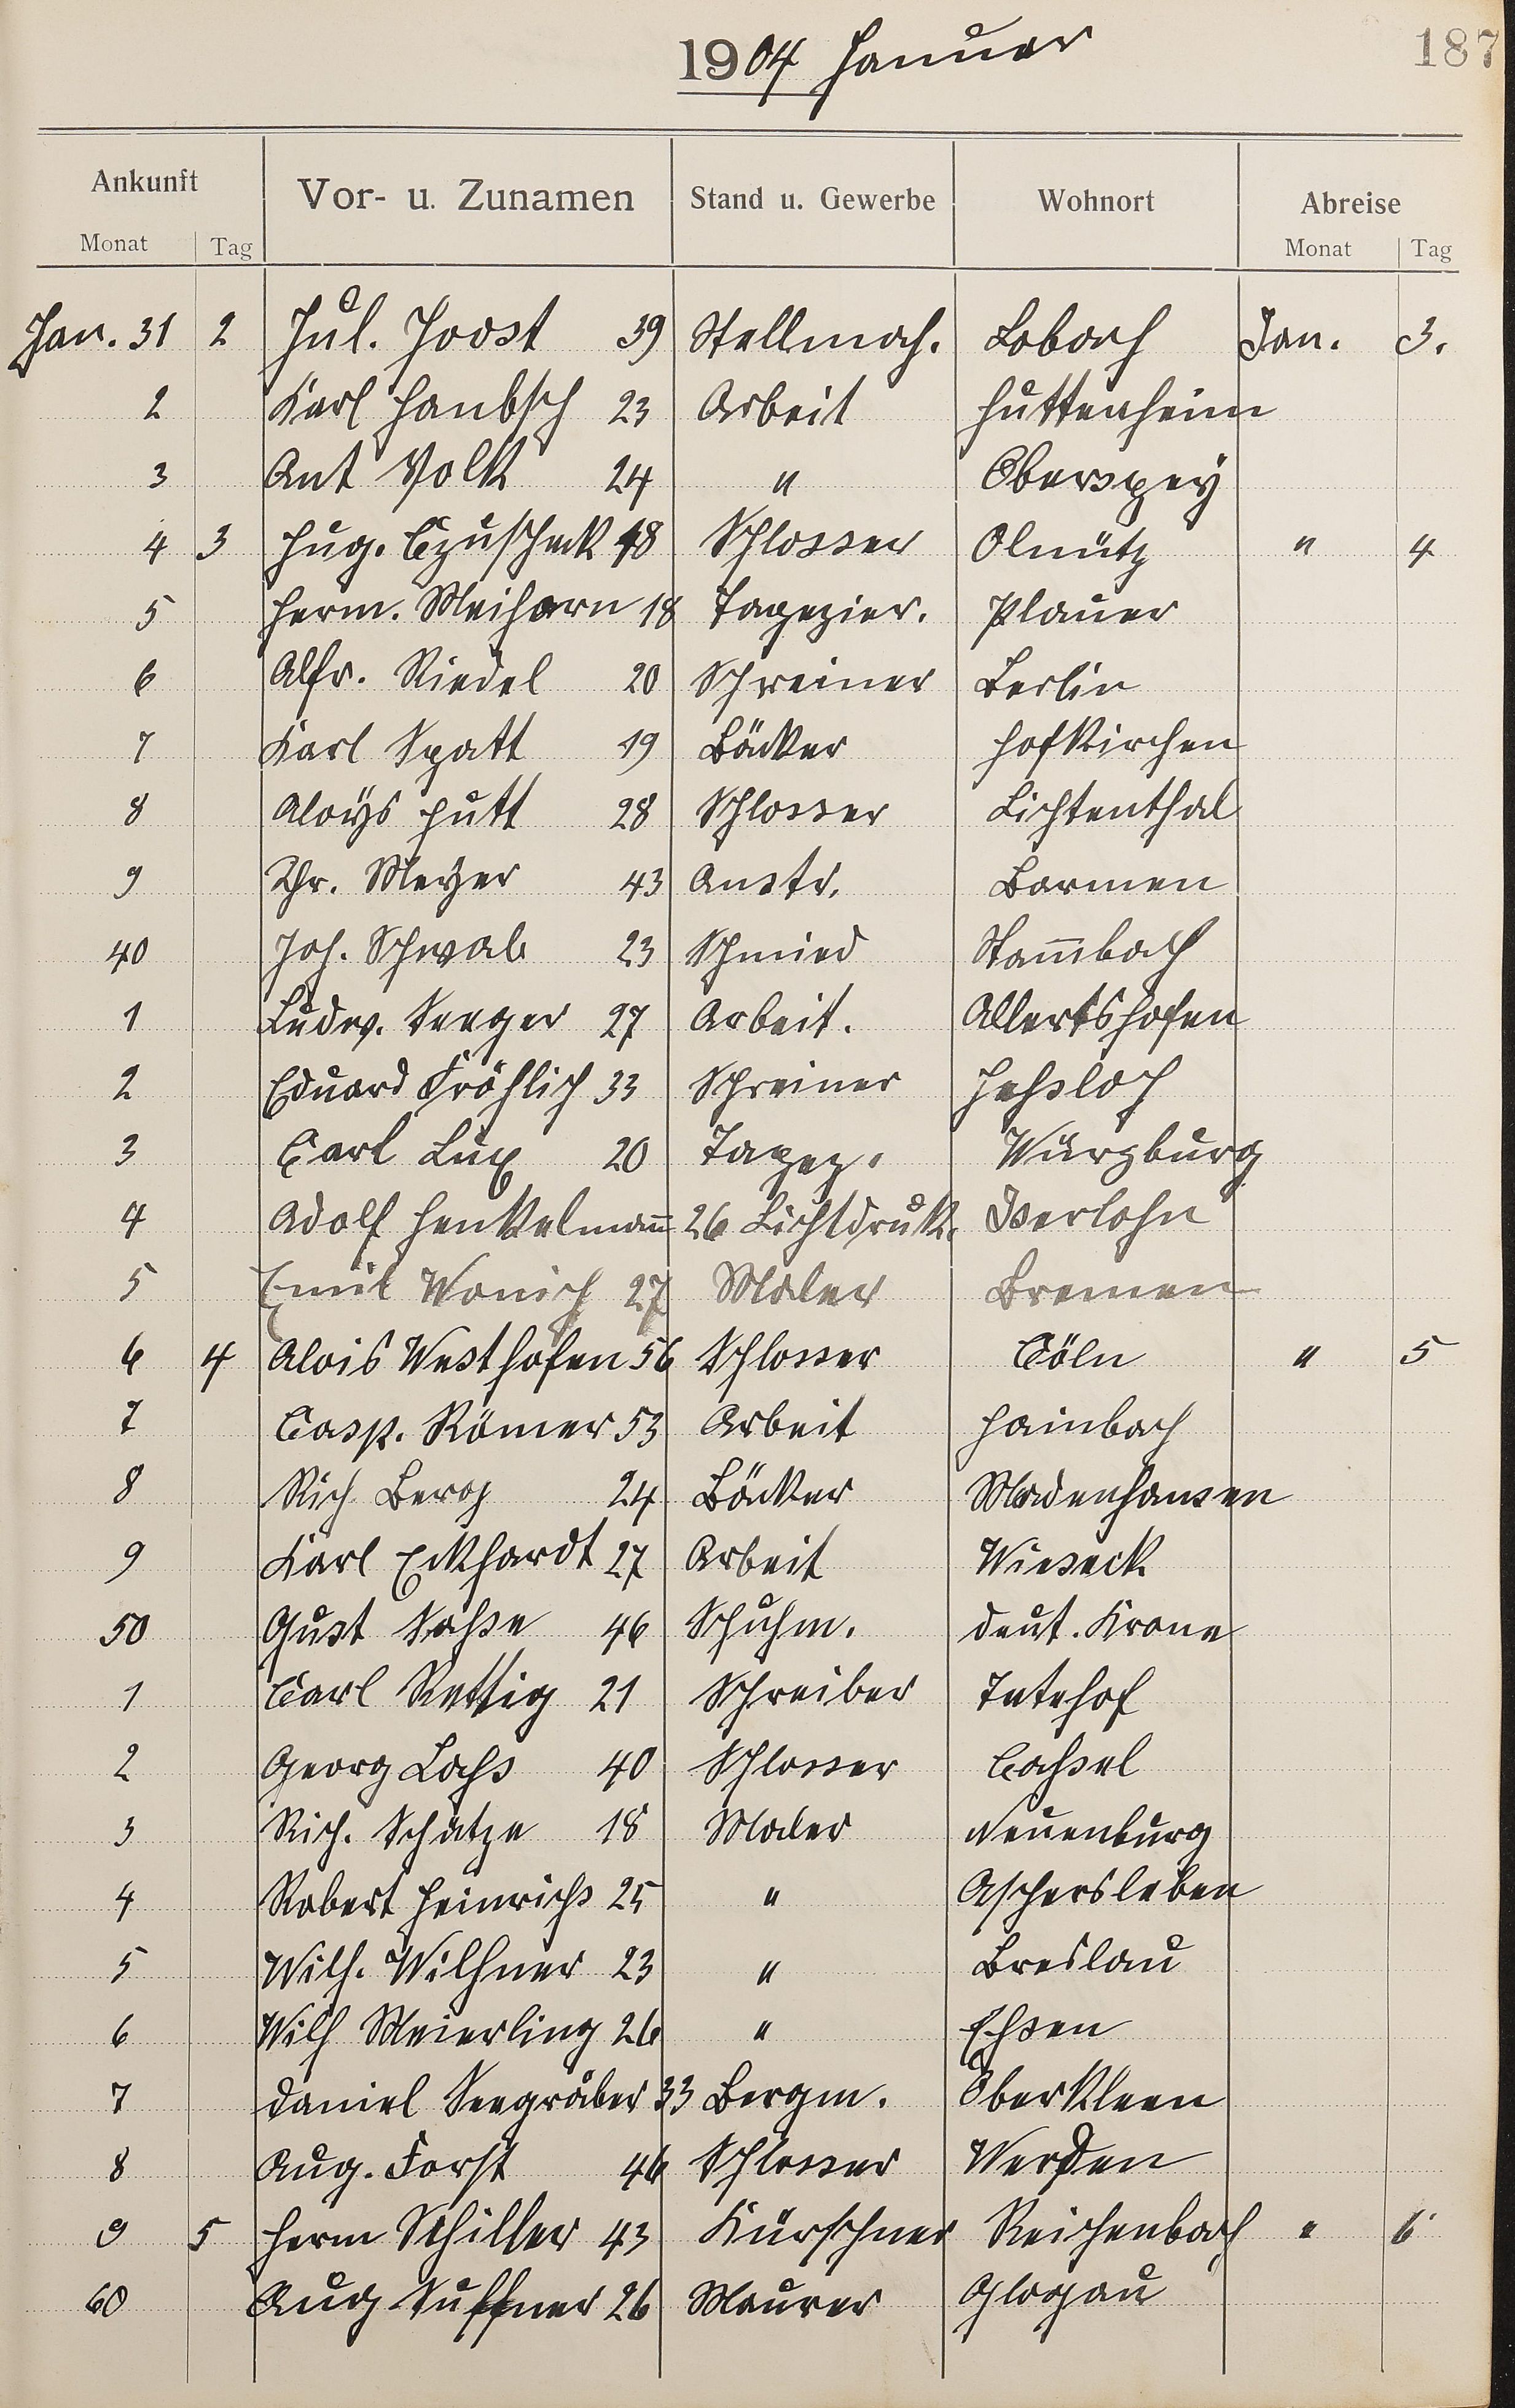 187
1904 Januar
Ankunft Vor- u. Zunamen Stand u. Gewerbe Wohnort Abreise
Monat Tag Monat Tag
Jan. 31 2 Jul. Joost 39 Stellmach. Lobach Jan. 3.
2 Karl Haubsch 23 Arbeit Huttenheim
3 Ant Volk 24 " Oberspey
4 3 Hug. Czuscheck 48 Schlosser Olmütz " 4
5 Herm. Meihorn 18 Tapezier. Plauer
6 Alfr. Riedel 20 Schreiner Berlin
7 Karl Spatt 19 Bäcker Hofkirchen
8 Aloys Hutt 28 Schlosser Lichtenthal
9 Chr. Meyer 43 Anstr. Barmen
40 Joh. Schwab 23 Schmied Stam̄bach
1 Ludw. Seeger 27 Arbeit. Allertshofen
2 Eduard Fröhlich 33 Schreiner Hessloch
3 Carl Lux 20 Tapez. Würzburg
4 Adolf Henkelman̄ 26 Lichtdruk. Iserlohn
5 Emil Wonich 27 Maler Bremen
6 4 Alois Westhofen 56 Schlosser Cöln " 5
7 Casp. Römer 53 Arbeit Hainbach
8 Rich Berg 24 Bäcker Madenhausen
9 Karl Eckhardt 27 Arbeit Wieseck
50 Gust Sasse 46 Schuhm. deut. Krone
1 Carl Rettig 21 Schreiber Tutehof
2 Georg Lass 40 Schlosser Cassel
3 Rich. Schätze 18 Maler Neuenburg
4 Robert Heinrichs 25 " Aschersleben
5 Wilh. Wilhner 23 " Breslau
6 Wilh Meierling 26 " Essen
7 Daniel Seegräber 33 Bergm. Oberkleen
8 Aug. Forst 46 Schlosser Werden
9 5 Herm Schiller 43 Kürschner Reichenbach " 6
60 Aug Suffner 26 Maurer Glogau